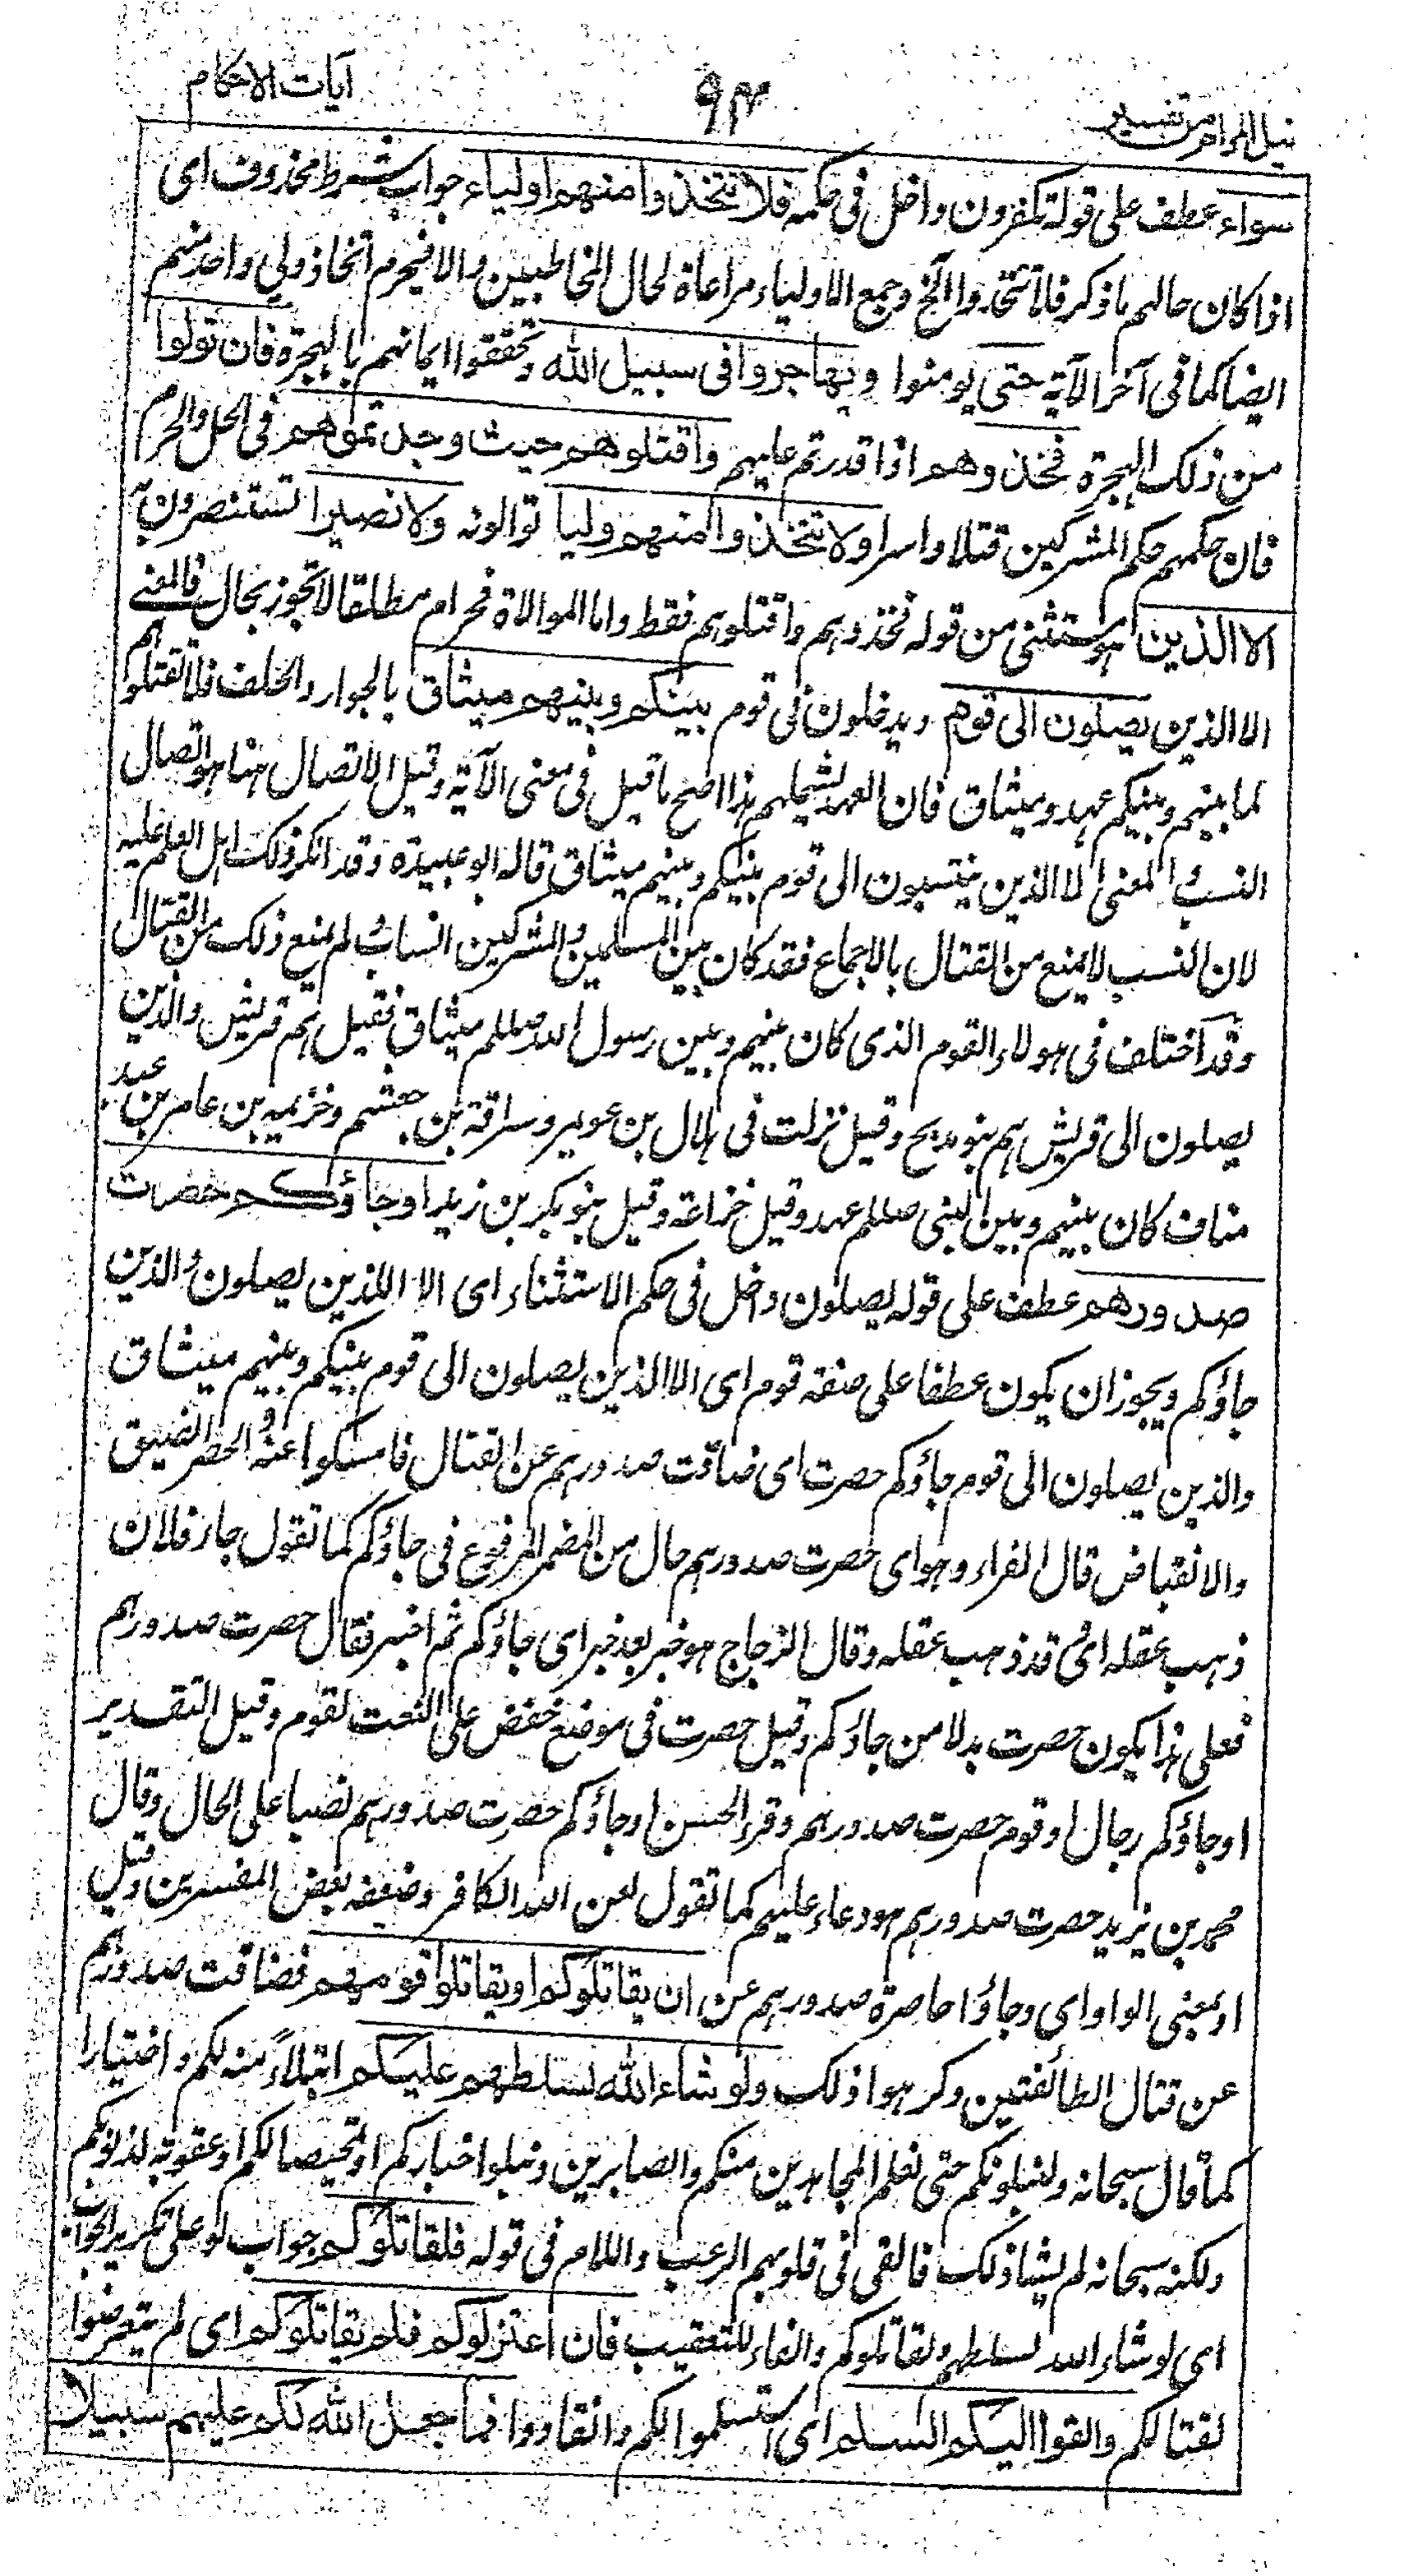 نيل المرام من تفسير
٩٣
آيات الاحكام
سواء عطف على قوله تكفرون داخل فى حكمه فلا تتخذوا منهم اولياء جواب شرط محذوف اى
اذا كان حالهم ما ذكر فلا تتخذوا الخ وجمع الاولياء مراعاة لحال المخاطبين والا فيحرم اتخاذ ولى واحد منهم
ايضا كما فى آخر الآية حتى يومنوا ويهاجروا فى سبيل الله وتحققوا ايمانهم بالهجرة فان تولوا
من ذلك الهجرة فخذوهم اذا قدرتم عليهم واقتلوهم حيث وجدتموهم فى الحل والحرم
فان حكمهم حكم المشركين قتلا واسرا ولا تتخذوا منهم وليا توالونه ولا نصيرا تستنصرون به
الا الذين هو مستثنى من قوله فخذوهم واقتلوهم فقط واما الموالاة فحرام مطلقا لا تجوز بحال فالمعنى
الا الذين يصلون الى قوم ويدخلون فى قوم بينكم وبينهم ميثاق بالجوار والحلف فلا تقتلوهم
لما بينهم وبينكم عهد وميثاق فان العهد يشملهم هذا اصح ما قيل فى معنى الآية وقيل الاتصال هنا هو اتصال
النسب والمعنى الا الذين ينتسبون الى قوم بينكم وبينهم ميثاق قاله ابو عبيدة وقد انكر ذلك اهل العلم عليه
لان النسب لا يمنع من القتال بالاجماع فقد كان بين المسلمين والمشركين انساب ولم يمنع ذلك من القتال
وقد اختلف فى هولاء القوم الذى كان بينهم وبين رسول الله صللم ميثاق فقيل هم قريش والذين
يصلون الى قريش هم بنو مدلج وقيل نزلت فى هلال بن عويمر وسراقة بن جعشم وخزيمه بن عامر بن عبد
مناف كان بينهم وبين النبى صللم عهد وقيل خزاعة وقيل بنو بكر بن زيد او جاؤكم حصرت
صدورهم عطف على قوله يصلون داخل فى حكم الاستثناء اى الا الذين يصلون والذين
جاؤكم ويجوز ان يكون عطفا على صفة قوم اى الا الذين يصلون الى قوم بينكم وبينهم ميثاق
والذين يصلون الى قوم جاؤكم حصرت اى ضاقت صدورهم عن القتال فامسكوا عنه والحصر الضيق
والانقباض قال الفراء وهو اى حصرت صدورهم حال من المضمر المرفوع فى جاؤكم كما تقول جاء فلان
ذهب عقله اى قد ذهب عقله وقال الزجاج هو خبر بعد خبر اى جاؤكم ثم اخبر فقال حصرت صدورهم
فعلى هذا يكون حصرت بدلا من جاؤكم وقيل حصرت فى موضع خفض على النعت لقوم وقيل التقدير
او جاؤكم رجال او قوم حصرت صدورهم وقرء الحسن او جاؤكم حصرت صدورهم نصبا على الحال وقال
محمد بن يزيد حصرت صدورهم هو دعاء عليهم كما تقول لعن الله الكافر وضعفه بعض المفسرين وقيل
او بمعنى الواو اى وجاؤا حاصرة صدورهم عن ان يقاتلوكم او يقاتلوا قومهم فضاقت صدورهم
عن قتال الطائفتين وكرهوا ذلك ولو شاء الله لسلطهم عليكم ابتلاءً منه لكم واختيارا
كما قال سبحانه ولنبلونكم حتى نعلم المجاهدين منكم والصابرين ونبلوا اخباركم او تمحيصا لكم او عقوبة لذنوبكم
ولكنه سبحانه لم يشا ذلك فالقى فى قلوبهم الرعب واللام فى قوله فلقاتلوكم جواب لو على تكرير الجواب
اى لو شاء الله لسلطهم ولقاتلوكم والفاء للتعقيب فان اعتزلوكم فلم يقاتلوكم اى لم يتعرضوا
لقتالكم والقوا اليكم السلم اى استسلموا لكم وانقادوا فما جعل الله لكم عليهم سبيلا